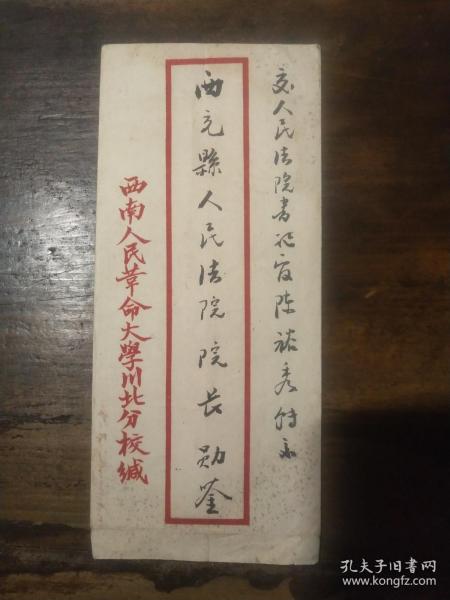 交人民法院書记官陈裕秀转交
西充縣人民法院院长勋鉴
西南人民革命大學川北分校缄
孔夫子旧书网
www.kongfz.com